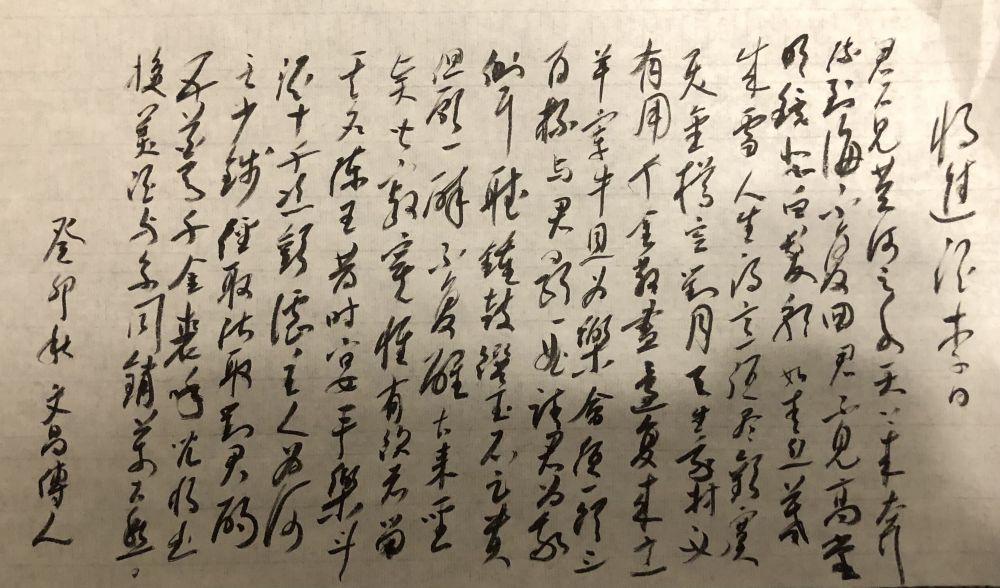 将進酒 李白
君不見黄河之水天上来奔
流到海不復回君不見高堂
明鏡悲白髮朝如青絲暮
成雪人生得意須尽歡莫
使金樽空對月天生我材必
有用千金散盡還复来烹
羊宰牛且为樂會須一飲三
百杯与君歌一曲請君为我
側耳聽鐘鼓饌玉不足貴
但願一醉不復醒古来聖
賢皆寂寞惟有飲者留
其名陳王昔时宴平樂斗
酒十千恣歡謔主人为何
言少錢徑取沽取對君酌
五花馬千金裘呼兒将出
換美酒与尔同銷萬古愁
癸卯秋文昌傳人